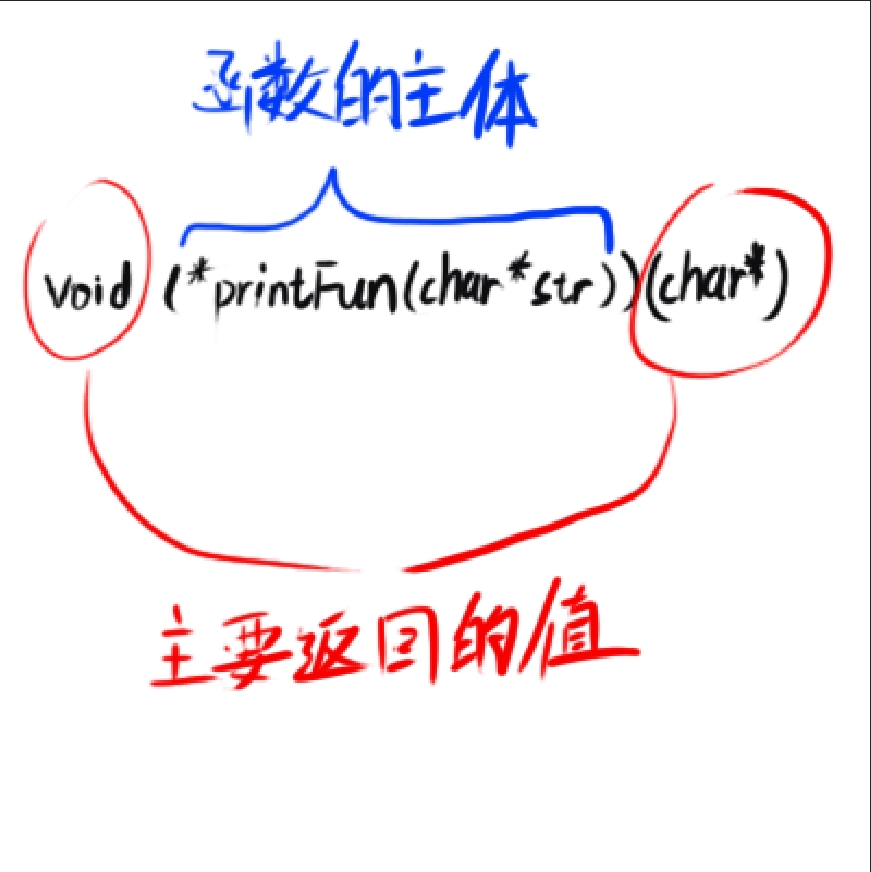 函数的主体
void (*printFun(char*str))(char*)
主要返回的值